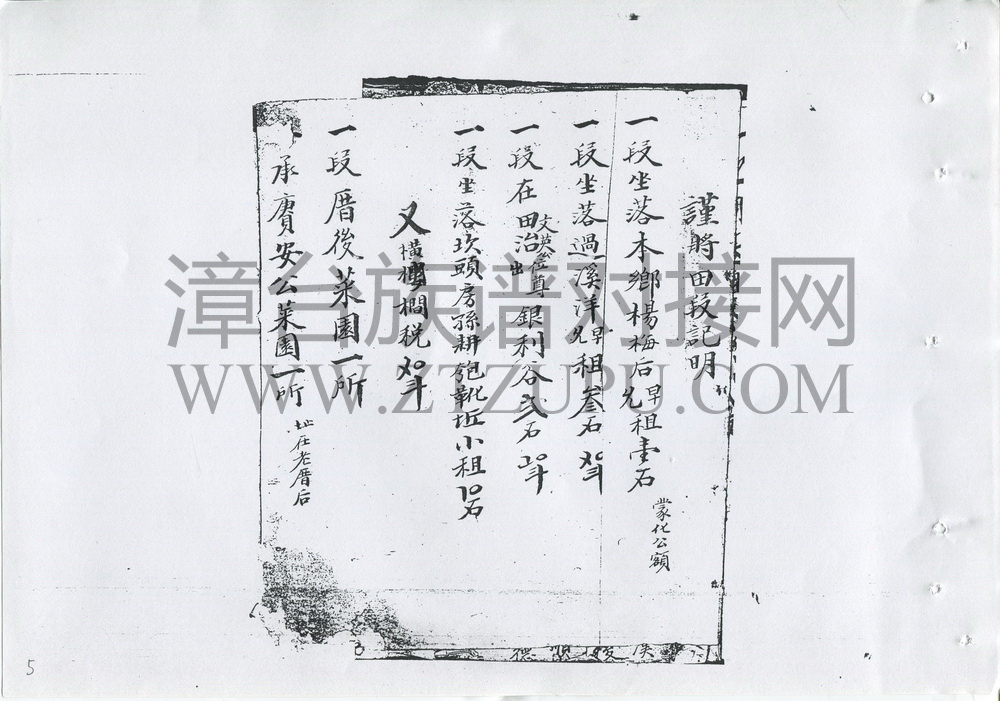 謹將田段記明
一段坐落本鄉楊梅后早允租壹石 蒙化公額
一段坐落過溪洋早允租叁石
一段在田治 銀利谷弍石
一段坐落坎頭房孫耕 坵小租 石
又橫 税
一段厝後菜園一所
承賡安公菜園一所 址在老厝后
漳台族谱对接网
WWW.ZTZUPU.COM
5